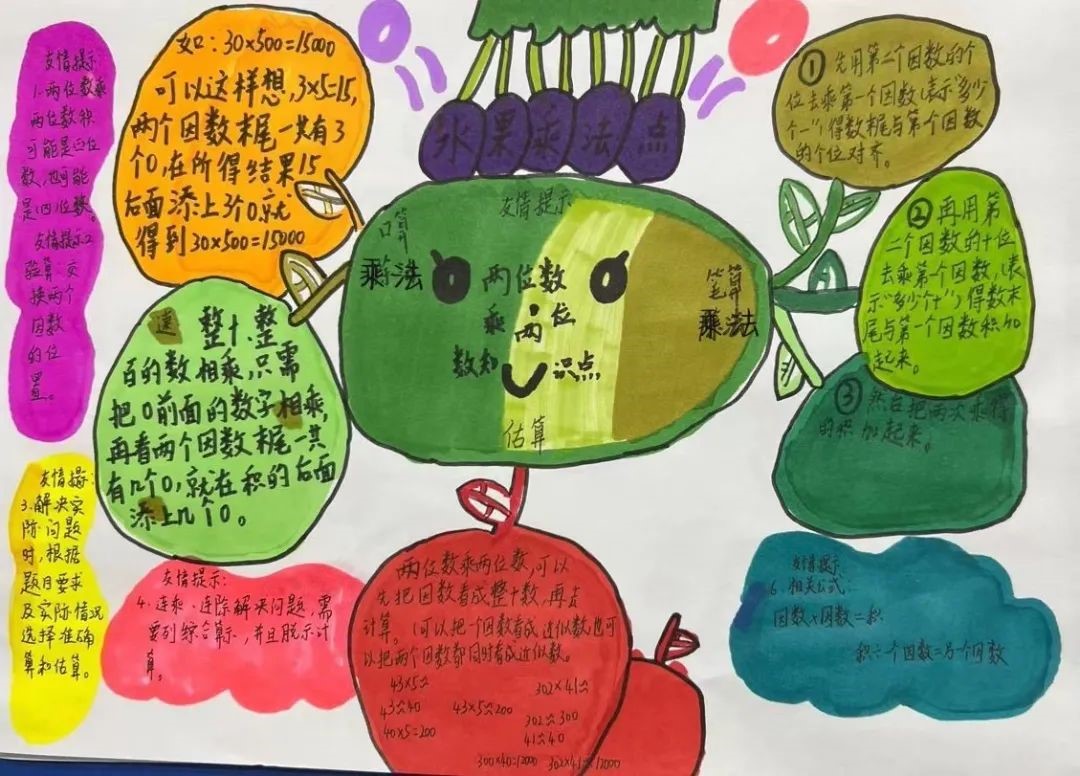 水果乘法点
友情提示:
1.两位数乘
两位数积
可能是三位
数,也可能
是(四)位数。
友情提示2
验算:交
换两个
因数
的位
置。
如:30×500=15000
可以这样想,3×5=15,
两个因数末尾一共有3
个0,在所得结果15
后面添上3个0,就
得到30×500=15000
整十、整
百的数相乘,只需
把0前面的数字相乘,
再看两个因数末尾一共
有几个0,就在积的后面
添上几个0。
友情提示
口算
乘法
两位数
乘两位
数知识点
笔算
乘法
估算
①先用第二个因数的个
位去乘第一个因数(表示“多少
个一”)得数末尾与第一个因数
的个位对齐。
②再用第
二个因数的十位
去乘第一个因数,(表
示“多少个十”)得数末
尾与第一个因数积加
起来。
③然后把两次乘得
的积加起来。
友情提示:
3.解决实
际问题
时,根据
题目要求
及实际情况
选择准确
算和估算。
友情提示:
4.连乘、连除解决问题,需
要列综合算示,并且脱示计
算。
两位数乘两位数,可以
先把因数看成整十数,再去
计算。(可以把一个因数看成近似数,也可
以把两个因数都同时看成近似数。
43×5≈
43≈40
43×5≈200
40×5=200
302×41≈
302≈300
41≈40
300×40=12000
302×41≈12000
友情提示
6.相关公式:
因数×因数=积
积÷一个因数=另一个因数